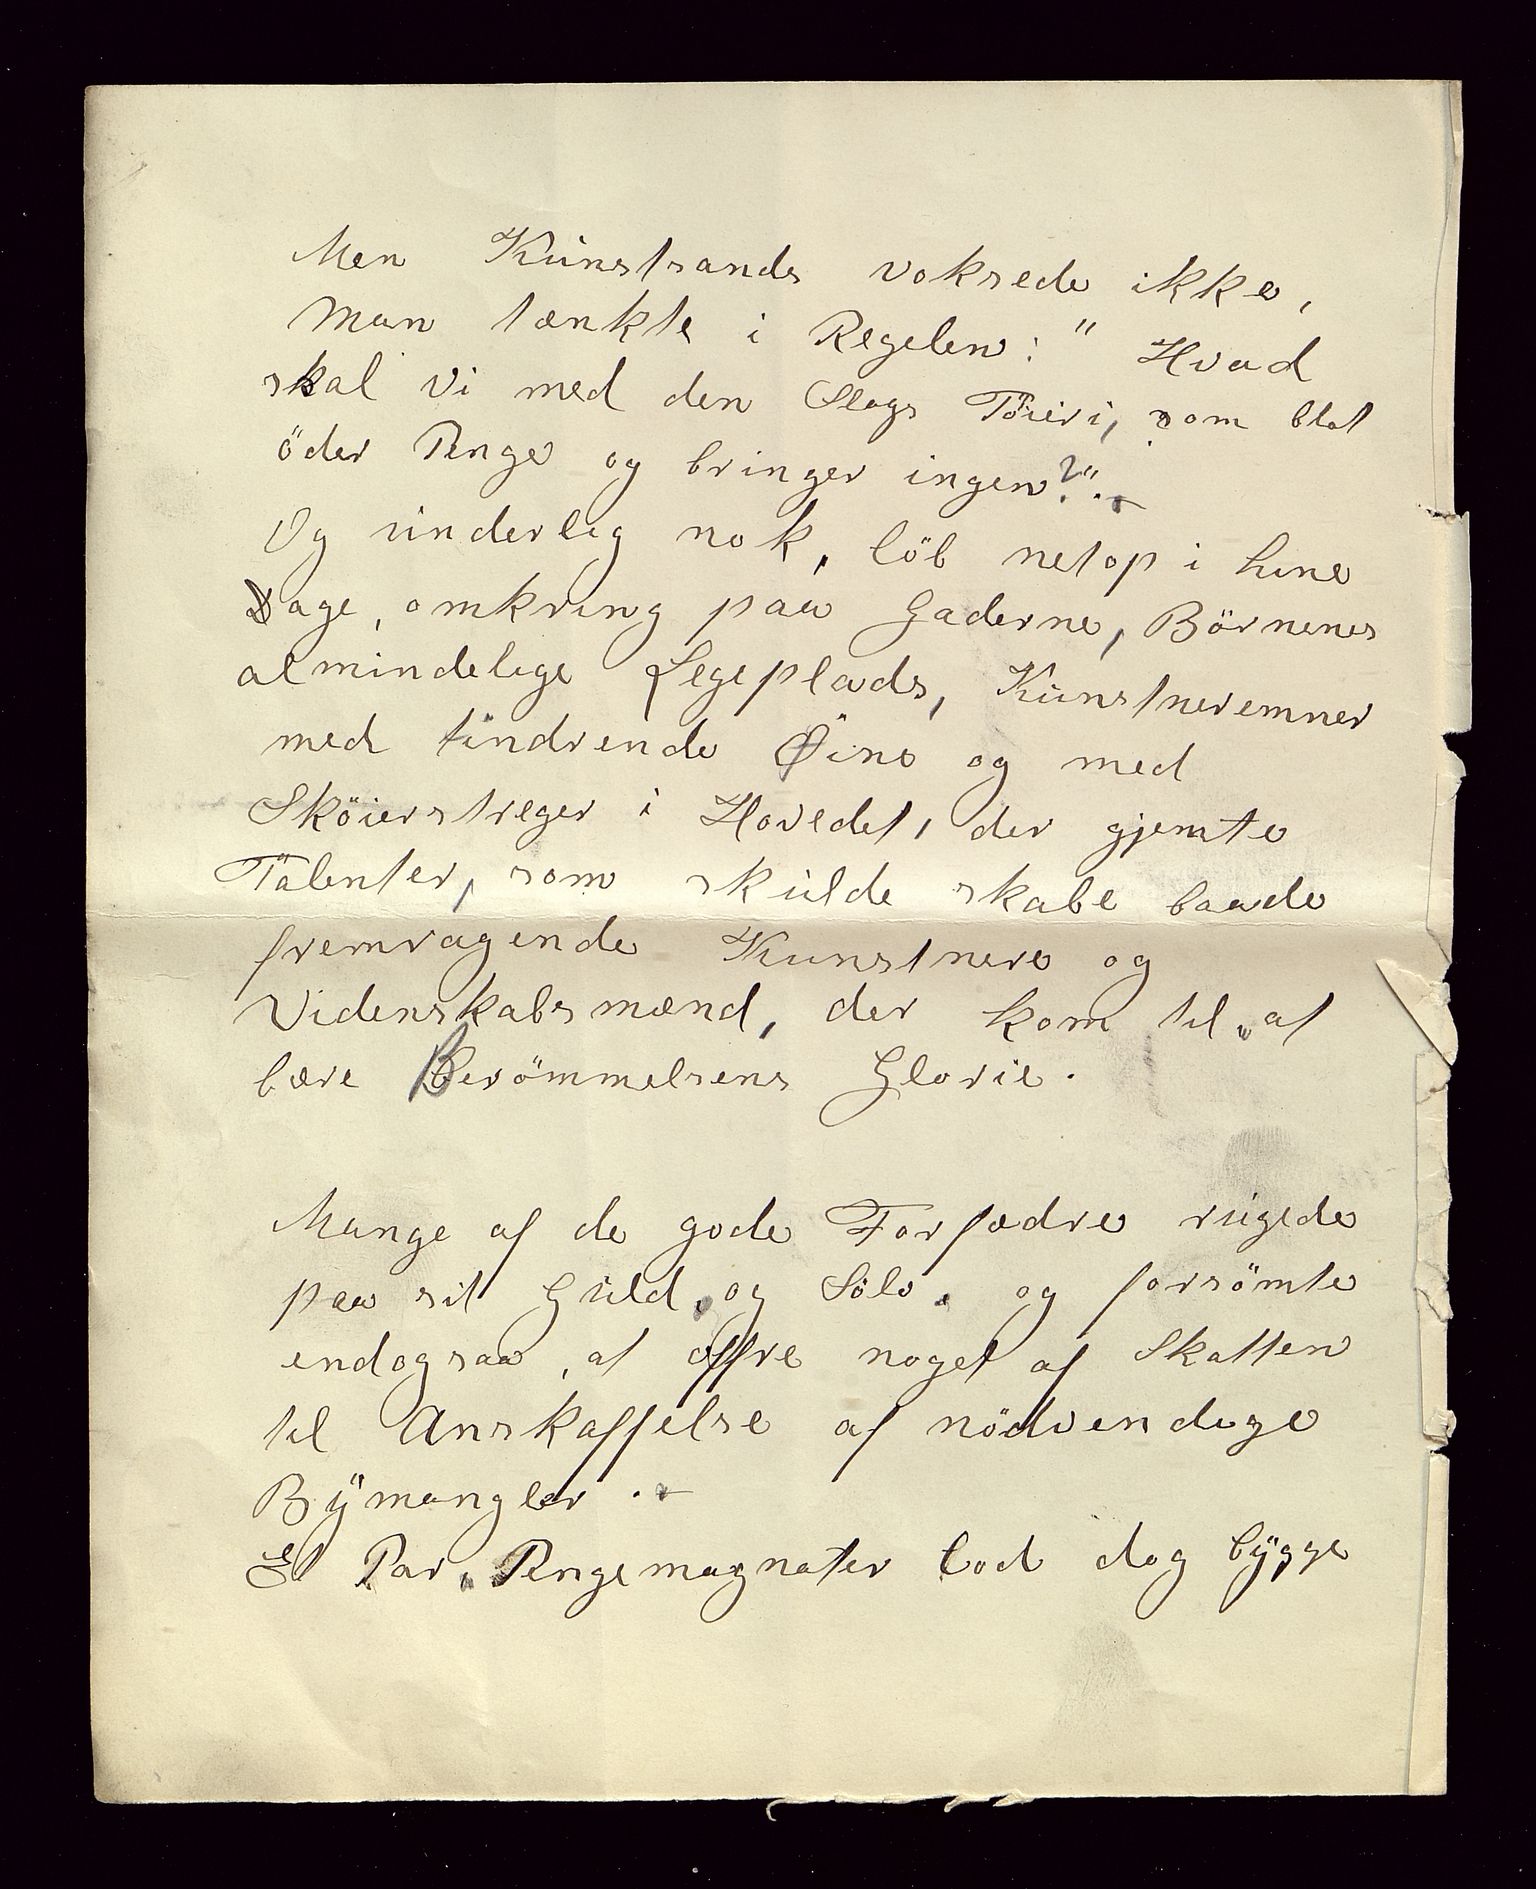 Men Kunstsands voksede ikke,
Man tænkte i Regelen: " Hvad
skal vi med den Slags Töieri, som blot
öder Penge og bringer ingen?".-
Og underlig nok, löb netop i hine
Dage, omkring paa Gaderne, Börnenes
almindelige Legeplads, Kunstneremner
med tindrende Öine og med
Sköierstreger i Hovedet, der gjemte
Talenter, som skulde skabe baade
fremragende Kunstnere og
Videnskabsmænd, der kom til at
bære Berömmelsens Glorie.
Mange af de gode Forfædre rugede
paa sit Guld, og Sölv, og forsömte
endogsaa, at offre noget af Skatten
til Anskaffelse af nödvendige
Bÿmangler.-
Et Par, Pengemagnater lod dog bÿgge